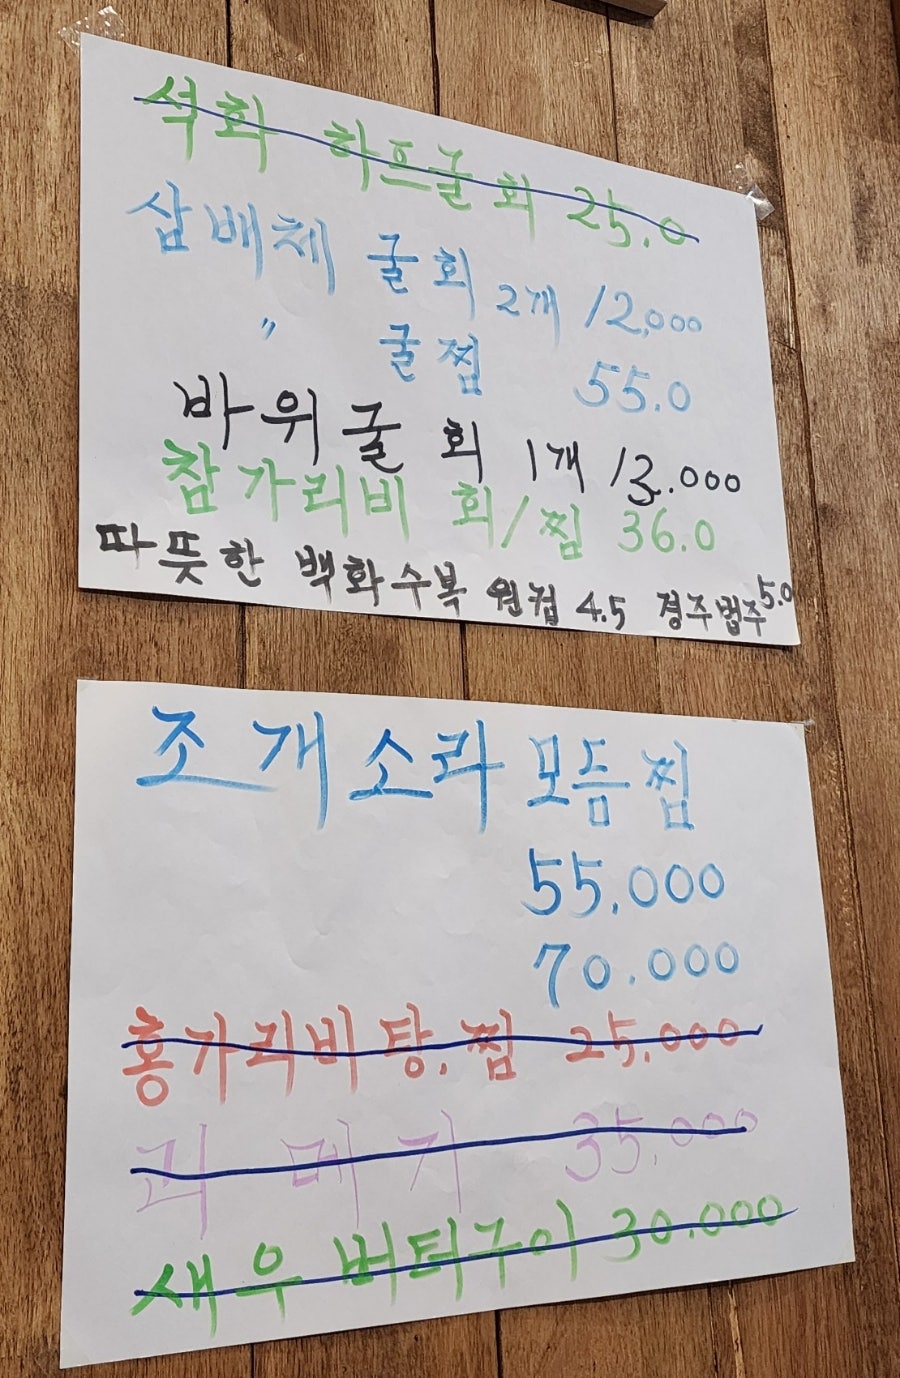 석화 하프굴회 25.0
삼배체 굴회 2개 12,000
〃 굴찜 55.0
바위굴 회 1개 13.000
참가리비 회/찜 36.0
따뜻한 백화수복 원컵 4.5 경주법주 5.0
조개소라 모듬찜
55.000
70.000
홍가리비탕.찜 25.000
과메기 35.000
새우버터구이 30.000